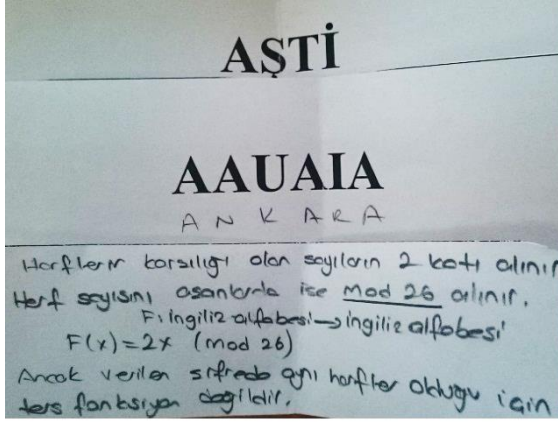 AŞTİ
AAUAIA
A N K A R A
Harflerin karşılığı olan sayıların 2 katı alınır
Harf sayısını aşanlarda ise Mod 26 alınır.
F: ingiliz alfabesi → ingiliz alfabesi
F(x) = 2x (mod 26)
Ancak verilen şifrede aynı harfler olduğu için
ters fonksiyon değildir.